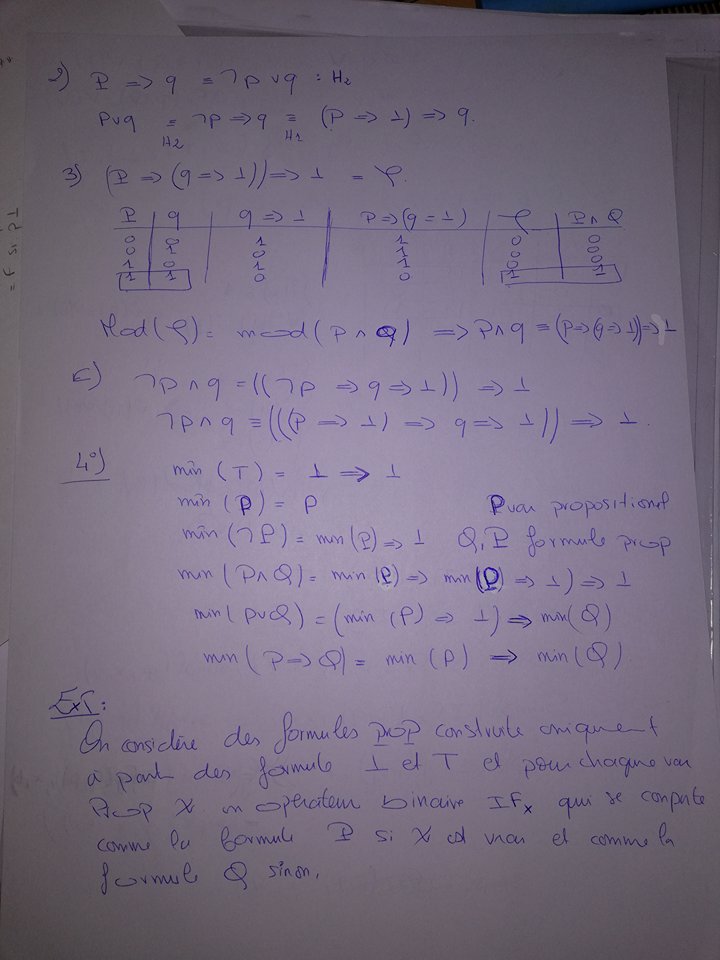 2) P ⇒ q ≡ ¬p∨q : H2
P∨q ≡ ¬p ⇒ q ≡ (P ⇒ ⊥) ⇒ q.
H2 H1
3) (P ⇒ (q ⇒ ⊥)) ⇒ ⊥ = φ.
P | q | q ⇒ ⊥ | P ⇒ (q = ⊥) | φ | P∧Q
0 0 1 1 0 0
0 1 0 1 0 0
1 0 1 1 0 0
1 1 0 0 1 1
Mod(φ) = mod(P∧Q) ⇒ P∧q ≡ (P ⇒ (q ⇒ ⊥)) ⇒ ⊥
¬p∧q = ((¬p ⇒ q ⇒ ⊥)) ⇒ ⊥
¬p∧q ≡ (((P ⇒ ⊥) ⇒ q ⇒ ⊥)) ⇒ ⊥.
4°) min (T) = ⊥ ⇒ ⊥
min (P) = P P var propositionel
min (¬P) = min (P) ⇒ ⊥ Q, P formule prop
min (P∧Q) = min (P) ⇒ min (P) ⇒ ⊥) ⇒ ⊥
min( P∨Q) = (min (P) ⇒ ⊥) ⇒ min(Q)
min( P ⇒ Q) = min (P) ⇒ min(Q)
Ex5:
On considère des formules prop construite uniquement
à partir des formule ⊥ et T et pour chaque var
Prop X un opérateur binaire IFx qui se comporte
comme la formule P si X est vrai et comme la
formule Q sinon.
= F si P ⊥